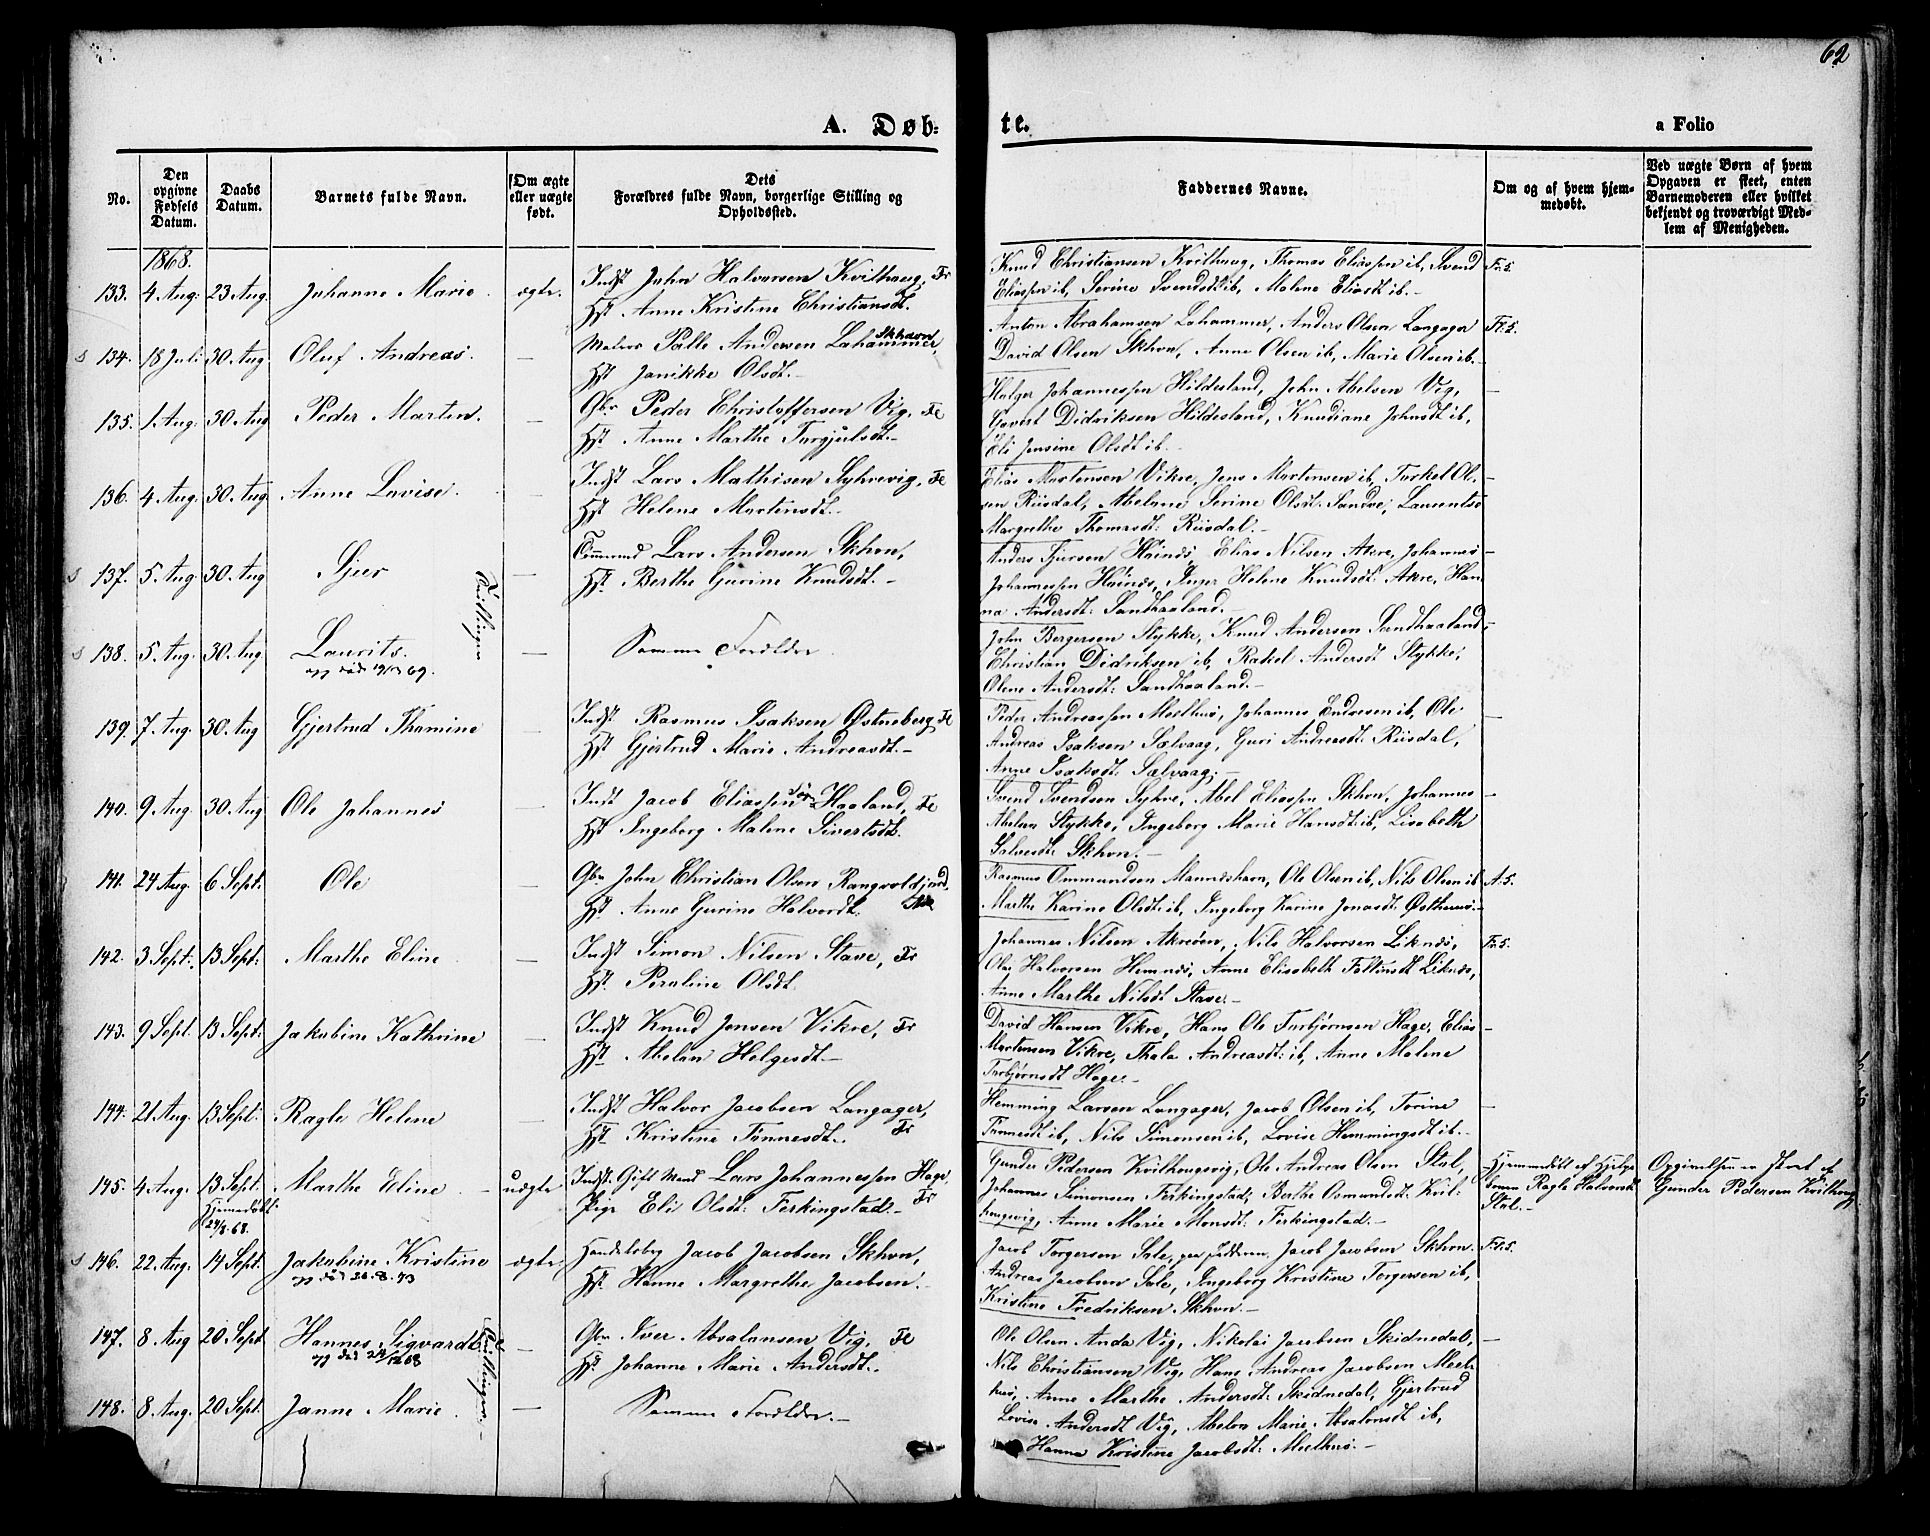 62
A. Døb-
te.
a Folio
No.
Den opgivne Fødsels Datum.
Daabs Datum.
Barnets fulde Navn.
Om ægte eller uægte født.
Dets Forældres fulde Navn, borgerlige Stilling og Opholdssted.
Faddernes Navne.
Om og af hvem hjemmedøbt.
Ved uægte Børn af hvem Opgaven er skeet, enten Barnemoderen eller hvilket bekjendt og troværdigt Medlem af Menigheden.
1868.
133. 4 Aug. 23 Aug. Johanne Marie. ægte. Indst John Halvorsen Kvilhaug, Fr
Hst Anne Kristine Christiansdt.
Knud Christiansen Kvilhaug, Thomas Eliassen ib, Svend
Eliassen ib, Serine Svendsdt ib, Malene Eliasdt ib.-
134. 18 Juli 30 Aug Oluf Andreas. — Palle Andersen Lahammer, Skhavn
Hst Janikke Olsdt.-
Anton Abrahamsen Lahammer, Anders Olsen Langager
David Olsen Skhvn, Anne Olsen ib, Marie Olsen ib.-
135. 1 Aug. 30 Aug Peder Martin. — Gbr Peder Christoffersen Vig, Fe
Hst Anne Marthe Torgjulsdt.-
Holger Johannessen Hildesland, John Abelsen Vig,
Govert Didriksen Hildesland, Knudiane Johnsdt ib,
Eli Jensine Olsdt ib.-
136. 4 Aug. 30 Aug Anne Lovise. — Indst Lars Mathisen Syhrevig, Fe
Hst Helene Martinsdt.-
Elias Mortensen Vikre, Jens Mortensen ib, Torkel Ol-
sen Riisdal, Abelune Serine Olsdt: Sandve, Laurentse
Margrethe Thomasdt: Riisdal.-
137. 5 Aug. 30 Aug Sjur Tvillinger — Lars Andersen Skhvn,
Hst. Berthe Gurine Knudsdt.-
Anders Sjursen Høinæs, Elias Nilsen Akre, Johannes
Johannessen Høinæs, Inger Helene Knudsdt: Akre, Han-
na Andersdt: Sandhaaland.-
138. 5 Aug. 30 Aug Laurits. — Samme Forældre.
John Bergersen Stykke, Knud Andersen Sandhaaland,
Christian Didriksen ib, Rakel Andersdt Stykke,
Olene Andersdt: Sandhaaland.-
139. 7 Aug. 30 Aug Gjertrud Thomine — Indst Rasmus Isaksen Østneberg, Fe
Hst Gjertrud Marie Andreasdt.-
Peder Andreassen Meelhus, Johannes Endresen ib, Ole
Andreas Isaksen Sælvaag, Guri Andreasdt: Riisdal,
Anne Isaksdt: Sælvaag.-
140. 9 Aug. 30 Aug Ole Johannes — Indst Jacob Eliassen Sør Haaland, Fe
Hst Ingeborg Malene Sivertsdt.
Svend Svendsen Syhre, Abel Eliassen Skhvn, Johannes
Abelsen Stykke, Ingeborg Marie Hansdt: ib, Lisabeth
Salvesdt: Skhvn.-
141. 24 Aug. 6 Sept: Ole — Gbr John Christian Olsen
Hst Anne Gurine Halvorsdt.
Rasmus Ommundsen Munkshavn, Ole Olsen ib, Nils Olsen ib
Marthe Karine Olsdt: ib, Ingeborg Karine Jonasdt: Østhus.-
142. 3 Sept. 13 Sept: Marthe Eline. — Indst Simon Nilsen Stave, Fr
Hst. Peraline Olsdt.
Johannes Nilsen Akreøen, Nils Halvorsen Liknæs,
Ole Halvorsen Hemnæs, Anne Elisabeth Liknæs,
Anne Marthe Nilsdt Stave.-
143. 9 Sept. 13 Sept: Jakobine Kathrine — Indst Knud Jensen Vikre, Fr
Hst. Abelun Helgesdt.-
David Hansen Vikre, Hans Ole Torbjørnsen Hage, Elias
Mortensen Vikre, Thala Andreasdt: ib, Anne Malene
Torbjørnsdt Hage.-
144. 21 Aug. 13 Sept: Ragle Helene — Indst Halvor Jacobsen Langager,
Hst. Kristine Tinnesdt. Fr
Hemming Larsen Langager, Jacob Olsen ib, Torine
Tinnesdt ib, Nils Simonsen ib, Lovise Hemmingsdt ib.-
145. 4 Aug. 13 Sept. Hjemmedøbt: 24/8.68. Marthe Eline. uægte Indst. Gift Mand Lars Johannessen Hage,
Pige Eli Olsdt: Ferkingstad.- Fr
Gunder Pedersen Kvilhaugsvig, Ole Andreas Olsen Stol,
Johannes Simonsen Ferkingstad, Berthe Osmundsdt: Kvil-
haugsvig, Anne Marie Monsdt: Ferkingstad.-
Ragle Halvorsdt Stol.-
Opgivelsen er skeet af Gunder Pedersen Kvilhaug
146. 22 Aug. 14 Sept. Jakobine Kristine 26.8.73 ægte. Handelsbrg Jacob Jacobsen Skhvn,
Hst. Hanne Margrethe Jacobsen.-
Jacob Torgersen Sale, Jacob Jacobsen Skhvn.
Andreas Jacobsen Sale, Ingeborg Kristine Torgersen ib,
Kristine Fredriksen Skhvn.-
147. 8 Aug 20 Sept Hannes Sigvardt Tvillinger.- — Gbr Iver Absalonsen Vig, Fe
Hst. Johanne Marie Andersdt.-
Ole Olsen Anda Vig, Nikolai Jacobsen Skidnedal,
Nils Christiansen Vig, Hans Andreas Jacobsen Meel-
hus, Anne Marthe Andersdt: Skidnedal, Gjertrud
148. 8 Aug. 20 Sept. Janne Marie. — Samme Forældre.-
Lovise Andersdt Vig, Abelon Marie Absalonsdt ib,
Hanna Kristine Jacobsdt: Meelhus.-